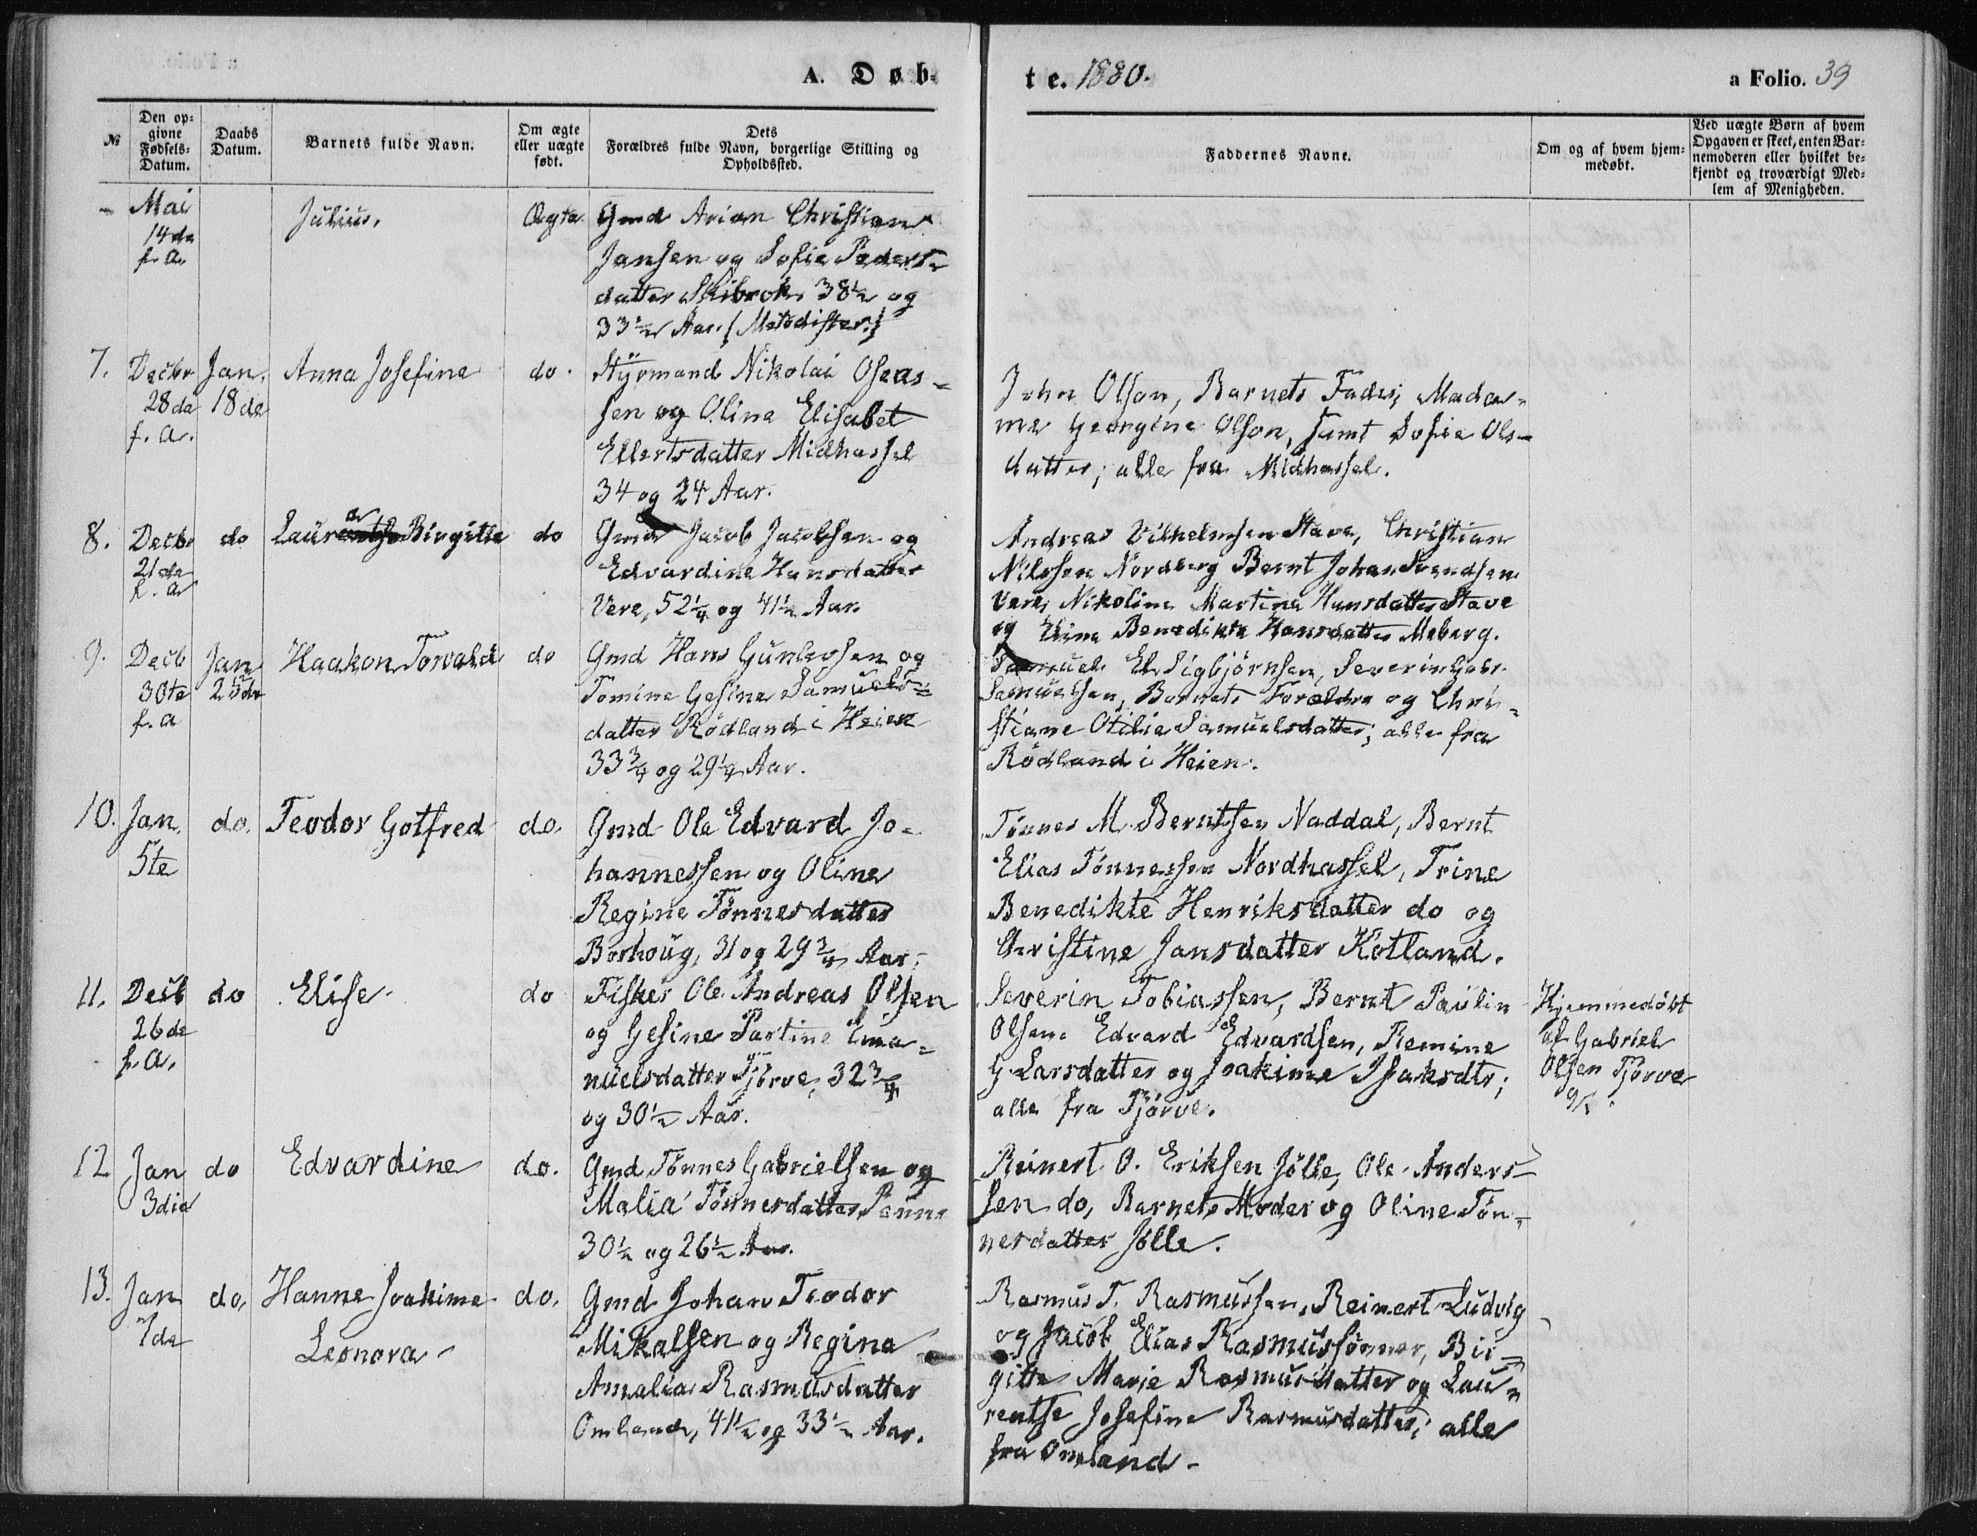 A. Døb-
te. 1880.
a Folio. 39
№
Den op-
givne
Fødsels-
Datum.
Daabs
Datum.
Barnets fulde Navn.
Om ægte
eller uægte
født.
Dets
Forældres fulde Navn, borgerlige Stilling og
Opholdssted.
Faddernes Navne.
Om og af hvem hjem-
medøbt.
Ved uægte Børn af hvem
Opgaven er skeet, enten Bar-
nemoderen eller hvilket be-
kjendt og troværdigt Med-
lem af Menigheden.
- Mai
14de
f. a.
Julius.
Ægte
Gmd Arian Christian
Jansen og Sofie Peders-
datter Skibrok 38½ og
33½ Aar. [Metodister]
7.
Decbr
28de
f. a.
Jan.
18de
Anna Josefine
do.
Styrmand Nikolai Oseas-
sen og Oline Elisabet
Ellertsdatter Midhassel
34 og 24 Aar.
John Olson, Barnets Fader, Mada-
me Georgine Olson, samt Sofie Ols-
datter; alle fra Midhassel.
8.
Decbr
21de
f. a
do
Birgitte
do
Gmd Jacob Jacobsen og
Edvardine Hansdatter
Vere, 52¼ og 41½ Aar.
Andreas Vilhelmsen Stave, Christian
Nilssen Nordberg Bernt Johan Svendsen
Vere, Nikoline Martine Hansdatter Stave
og Eline Benedikte Hansdatter Meberg.
9.
Decb
30te
f. a
Jan
25de
Haakon Torvald
do
Gmd Hans Gunlevsen og
Tomine Gesine Samuels-
datter Rödland i Heien
33¾ og 29¼ Aar.
Samuel El. Sigbjörnsen, Severin Gabr.
Samuelsen, Barnets Forældre og Chri-
stiane Otilie Samuelsdatter; alle fra
Rödland i Heien.
10.
Jan.
5te
do.
Teodor Gotfred
do.
Gmd Ole Edvard Jo-
hannessen og Oline
Regine Tönnesdatter
Borhoug, 31 og 29¾ Aar.
Tönnes M. Berntsen Naddal, Bernt
Elias Tönnessen Nordhassel, Trine
Benedikte Henriksdatter do og
Christine Jansdatter Kotland.
11.
Decb
26de
f. a.
do
Elise.
do
Fisker Ole Andreas Olsen
og Gesine Partine Ema-
nuelsdatter Tjörve, 32¾
og 30½ Aar.
Severin Tobiassen, Bernt Paulin
Olsen, Edvard Edvardsen, Remine
G. Larsdatter og Joakime Isaksdtr;
alle fra Tjörve.
Hjemmedöbt
af Gabriel
Olsen Tjörve
12
Jan
3die
do
Edvardine
do.
Gmd Tönnes Gabrielsen og
Malia Tönnesdatter Penne
30½ og 26½ Aar.
Reinert O. Eriksen Jölle, Ole Anders-
sen do, Barnets Moder og Oline Tön-
nesdatter Jölle.
13.
Jan
7de
do,
Hanne Joakime
Leonora
do.
Gmd Johan Teodor
Mikalsen og Regine
Amalia Rasmusdatter
Omland, 41½ og 33½ Aar.
Rasmus T. Rasmussen, Reinert Ludvig
og Jacob Elias Rasmussönner, Bir-
gitte Marie Rasmusdatter og Lau-
rentse Josefine Rasmusdatter; alle
fra Omland.